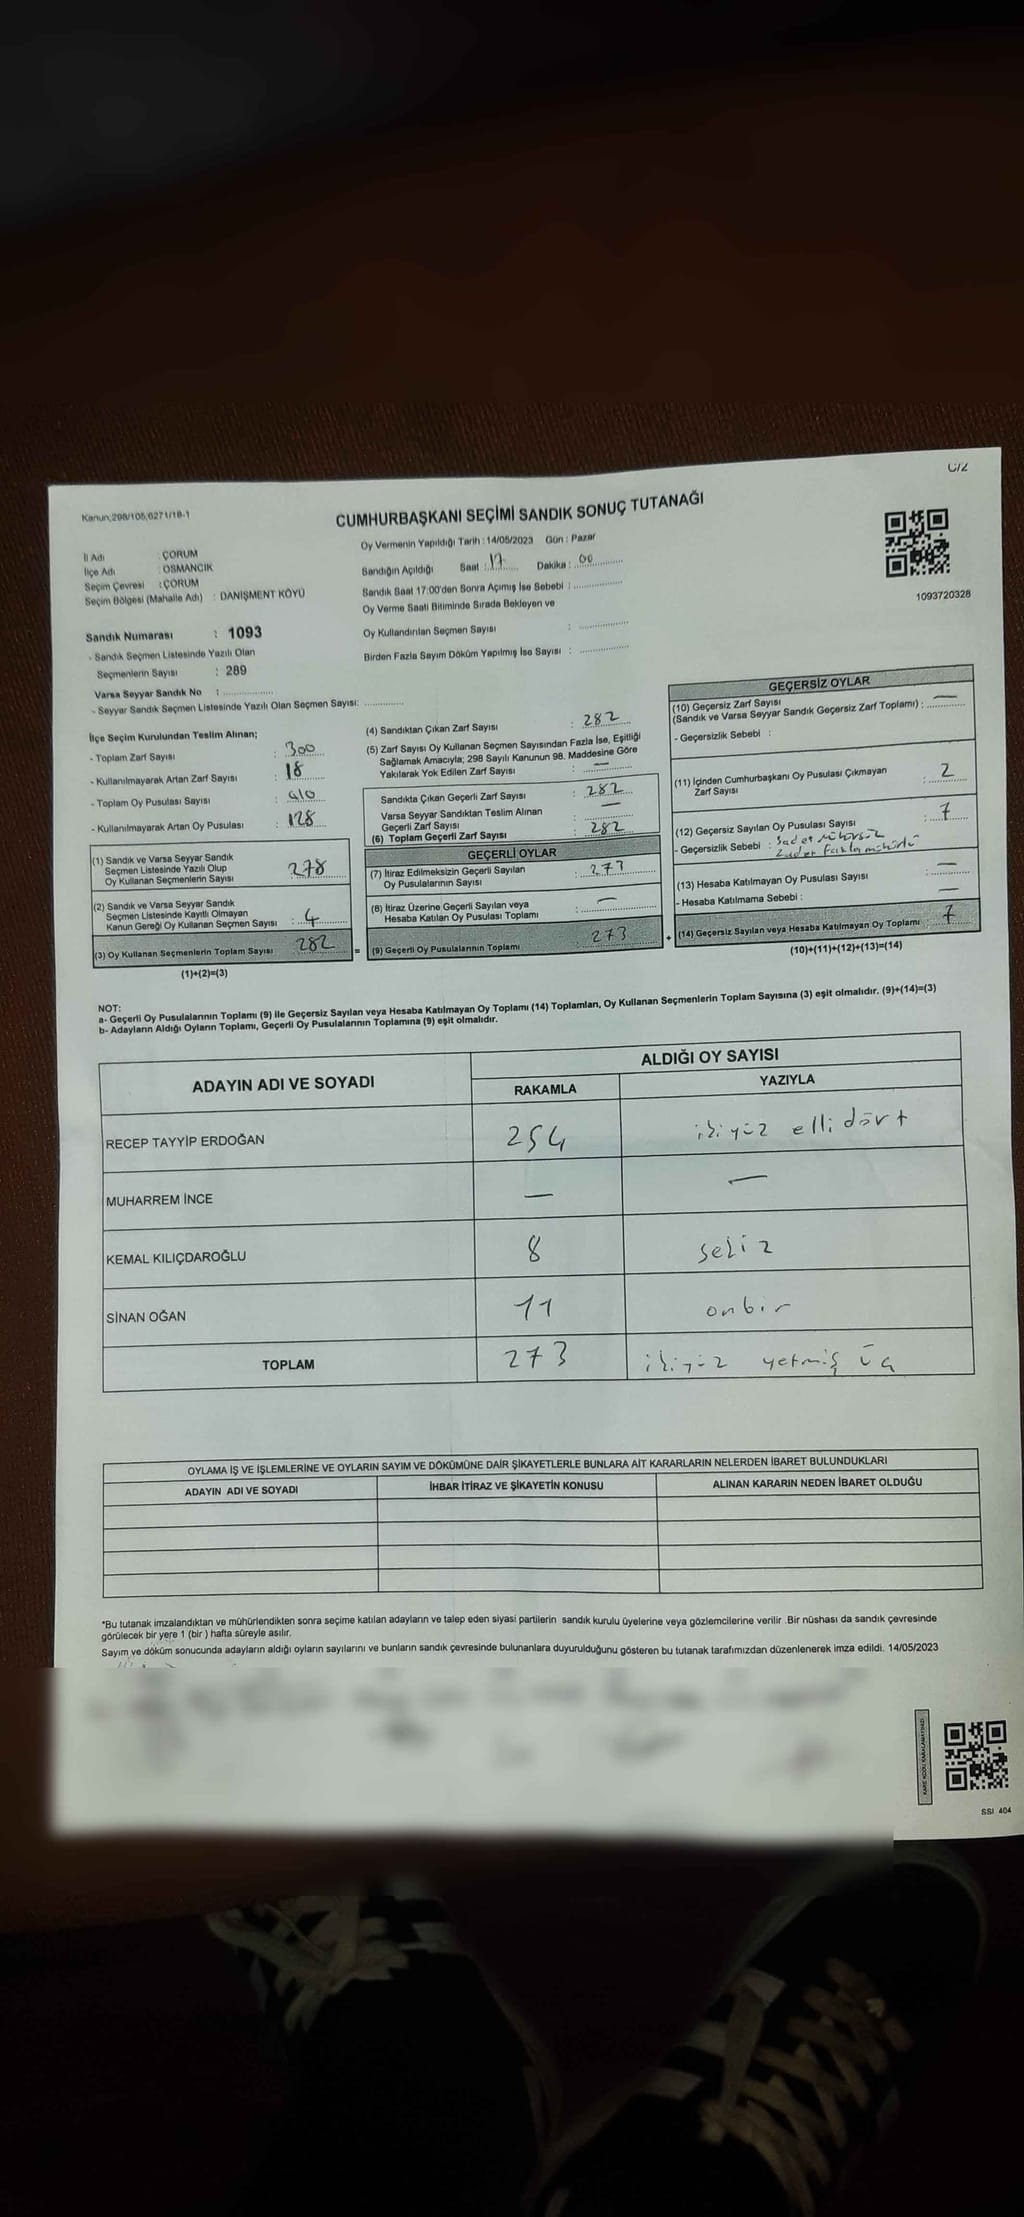 C/2
Kanun;298/105,6271/18-1
CUMHURBAŞKANI SEÇİMİ SANDIK SONUÇ TUTANAĞI
İl Adı : ÇORUM
İlçe Adı : OSMANCIK
Seçim Çevresi : ÇORUM
Seçim Bölgesi (Mahalle Adı) : DANİŞMENT KÖYÜ
Oy Vermenin Yapıldığı Tarih : 14/05/2023 Gün : Pazar
Sandığın Açıldığı Saat : 17 Dakika : 00
Sandık Saat 17:00'den Sonra Açımış İse Sebebi :
Oy Verme Saati Bitiminde Sırada Bekleyen ve
Oy Kullandırılan Seçmen Sayısı :
Birden Fazla Sayım Döküm Yapılmış İse Sayısı :
1093720328
Sandık Numarası : 1093
- Sandık Seçmen Listesinde Yazılı Olan
Seçmenlerin Sayısı : 289
Varsa Seyyar Sandık No :
- Seyyar Sandık Seçmen Listesinde Yazılı Olan Seçmen Sayısı:
İlçe Seçim Kurulundan Teslim Alınan;
- Toplam Zarf Sayısı : 300
- Kullanılmayarak Artan Zarf Sayısı : 18
- Toplam Oy Pusulası Sayısı :
- Kullanılmayarak Artan Oy Pusulası : 128
(1) Sandık ve Varsa Seyyar Sandık
Seçmen Listesinde Yazılı Olup
Oy Kullanan Seçmenlerin Sayısı : 278
(2) Sandık ve Varsa Seyyar Sandık
Seçmen Listesinde Kayıtlı Olmayan
Kanun Gereği Oy Kullanan Seçmen Sayısı : 4
(3) Oy Kullanan Seçmenlerin Toplam Sayısı 282 =
(1)+(2)=(3)
(4) Sandıktan Çıkan Zarf Sayısı : 282
(5) Zarf Sayısı Oy Kullanan Seçmen Sayısından Fazla İse, Eşitliği
Sağlamak Amacıyla; 298 Sayılı Kanunun 98. Maddesine Göre
Yakılarak Yok Edilen Zarf Sayısı : —
Sandıkta Çıkan Geçerli Zarf Sayısı : 282
Varsa Seyyar Sandıktan Teslim Alınan
Geçerli Zarf Sayısı : —
(6) Toplam Geçerli Zarf Sayısı : 282
GEÇERLİ OYLAR
(7) İtiraz Edilmeksizin Geçerli Sayılan
Oy Pusulalarının Sayısı : 273
(8) İtiraz Üzerine Geçerli Sayılan veya
Hesaba Katılan Oy Pusulası Toplamı : —
(9) Geçerli Oy Pusulalarının Toplamı 273 +
GEÇERSİZ OYLAR
(10) Geçersiz Zarf Sayısı
(Sandık ve Varsa Seyyar Sandık Geçersiz Zarf Toplamı) : —
- Geçersizlik Sebebi :
(11) İçinden Cumhurbaşkanı Oy Pusulası Çıkmayan
Zarf Sayısı : 2
(12) Geçersiz Sayılan Oy Pusulası Sayısı : 7
- Geçersizlik Sebebi : 5 adet mühürsüz
2 adet fazla mühürlü
(13) Hesaba Katılmayan Oy Pusulası Sayısı : —
- Hesaba Katılmama Sebebi : —
(14) Geçersiz Sayılan veya Hesaba Katılmayan Oy Toplamı : 7
(10)+(11)+(12)+(13)=(14)
NOT:
a- Geçerli Oy Pusulalarının Toplamı (9) ile Geçersiz Sayılan veya Hesaba Katılmayan Oy Toplamı (14) Toplamları, Oy Kullanan Seçmenlerin Toplam Sayısına (3) eşit olmalıdır. (9)+(14)=(3)
b- Adayların Aldığı Oyların Toplamı, Geçerli Oy Pusulalarının Toplamına (9) eşit olmalıdır.
ADAYIN ADI VE SOYADI
ALDIĞI OY SAYISI
RAKAMLA YAZIYLA
RECEP TAYYİP ERDOĞAN 254 ikiyüz ellidört
MUHARREM İNCE — —
KEMAL KILIÇDAROĞLU 8 sekiz
SİNAN OĞAN 11 onbir
TOPLAM 273 ikiyüz yetmiş üç
OYLAMA İŞ VE İŞLEMLERİNE VE OYLARIN SAYIM VE DÖKÜMÜNE DAİR ŞİKAYETLERLE BUNLARA AİT KARARLARIN NELERDEN İBARET BULUNDUKLARI
ADAYIN ADI VE SOYADI İHBAR İTİRAZ VE ŞİKAYETİN KONUSU ALINAN KARARIN NEDEN İBARET OLDUĞU
*Bu tutanak imzalandıktan ve mühürlendikten sonra seçime katılan adayların ve talep eden siyasi partilerin sandık kurulu üyelerine veya gözlemcilerine verilir .Bir nüshası da sandık çevresinde
görülecek bir yere 1 (bir ) hafta süreyle asılır.
Sayım ve döküm sonucunda adayların aldığı oyların sayılarını ve bunların sandık çevresinde bulunanlara duyurulduğunu gösteren bu tutanak tarafımızdan düzenlenerek imza edildi. 14/05/2023
KARE KODU KARALAMAYINIZ!
SSI 404